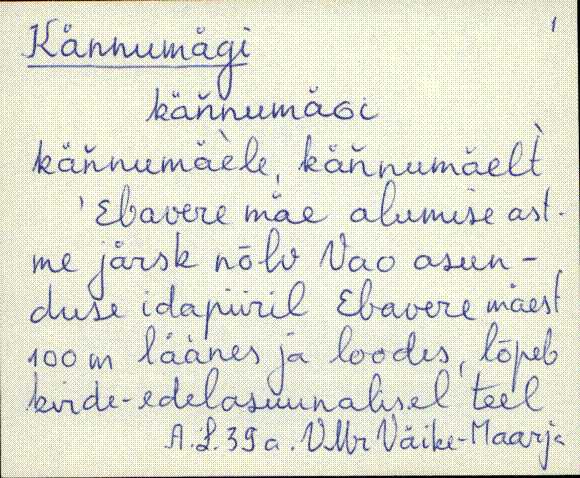 1
Kännumägi
käňnumäɢi
käňnumäèle, käňnumäelt̀
'Ebavere mäe alumise ast-
me järsk nõlv Vao asun-
duse idapiiril Ebavere mäest
100 m läänes ja loodes, lõpeb
kirde-edelasuunalisel teel
A.L. 39 a. VMr Väike-Maarja